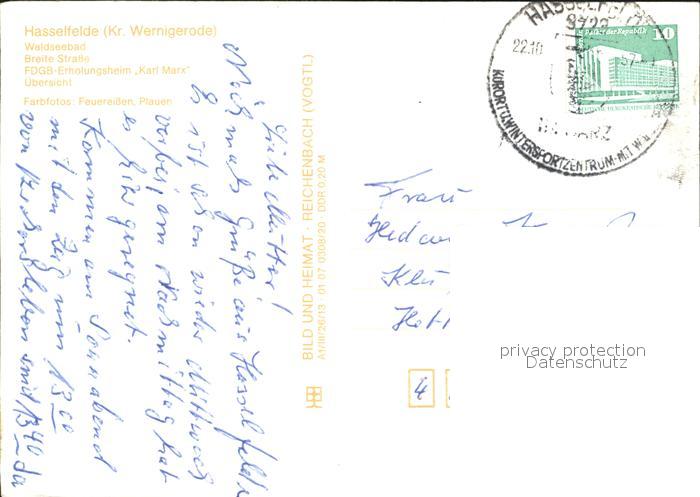 Hasselfelde (Kr. Wernigerode)
Waldseebad
Breite Straße
FDGB-Erholungsheim „Karl Marx"
Übersicht
Farbfotos: Feuereißen, Plauen
Liebe Mutter!
Nochmals Grüße aus Hasselfelde
Es ist schon wieder Mittwoch
vorbei, am Nachmittag hat
es hier geregnet.
Kommen am Sonnabend
mit dem Zug um 13 00
von
BILD UND HEIMAT · REICHENBACH (VOGTL)
A1/III/26/13 01 07 0308/20 · DDR 0,20 M
HASSELFELDE
3723
22.10
HARZ
KURORT U. WINTERSPORTZENTRUM · MIT
Palast der Republik
10
Frau
4
privacy protection
Datenschutz